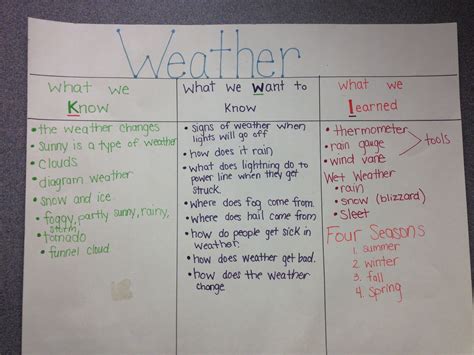 Weather
What we
Know
• the weather changes
• Sunny is a type of weather
• Clouds
• diagram weather
• snow and ice
• foggy, partly sunny, rainy,
storm
• tornado
• funnel cloud
What we Want to
Know
• signs of weather when
lights will go off
• how does it rain
• what does lightning do to
power line when they get
struck.
• where does fog come from.
• where does hail come from
• how do people get sick in
weather.
• how does weather get bad.
• how does the weather
change
What we
Learned
• thermometer
• rain gauge
• wind vane
tools
Wet Weather
• rain
• snow (blizzard)
• Sleet
Four Seasons
1. summer
2. winter
3. fall
4. Spring